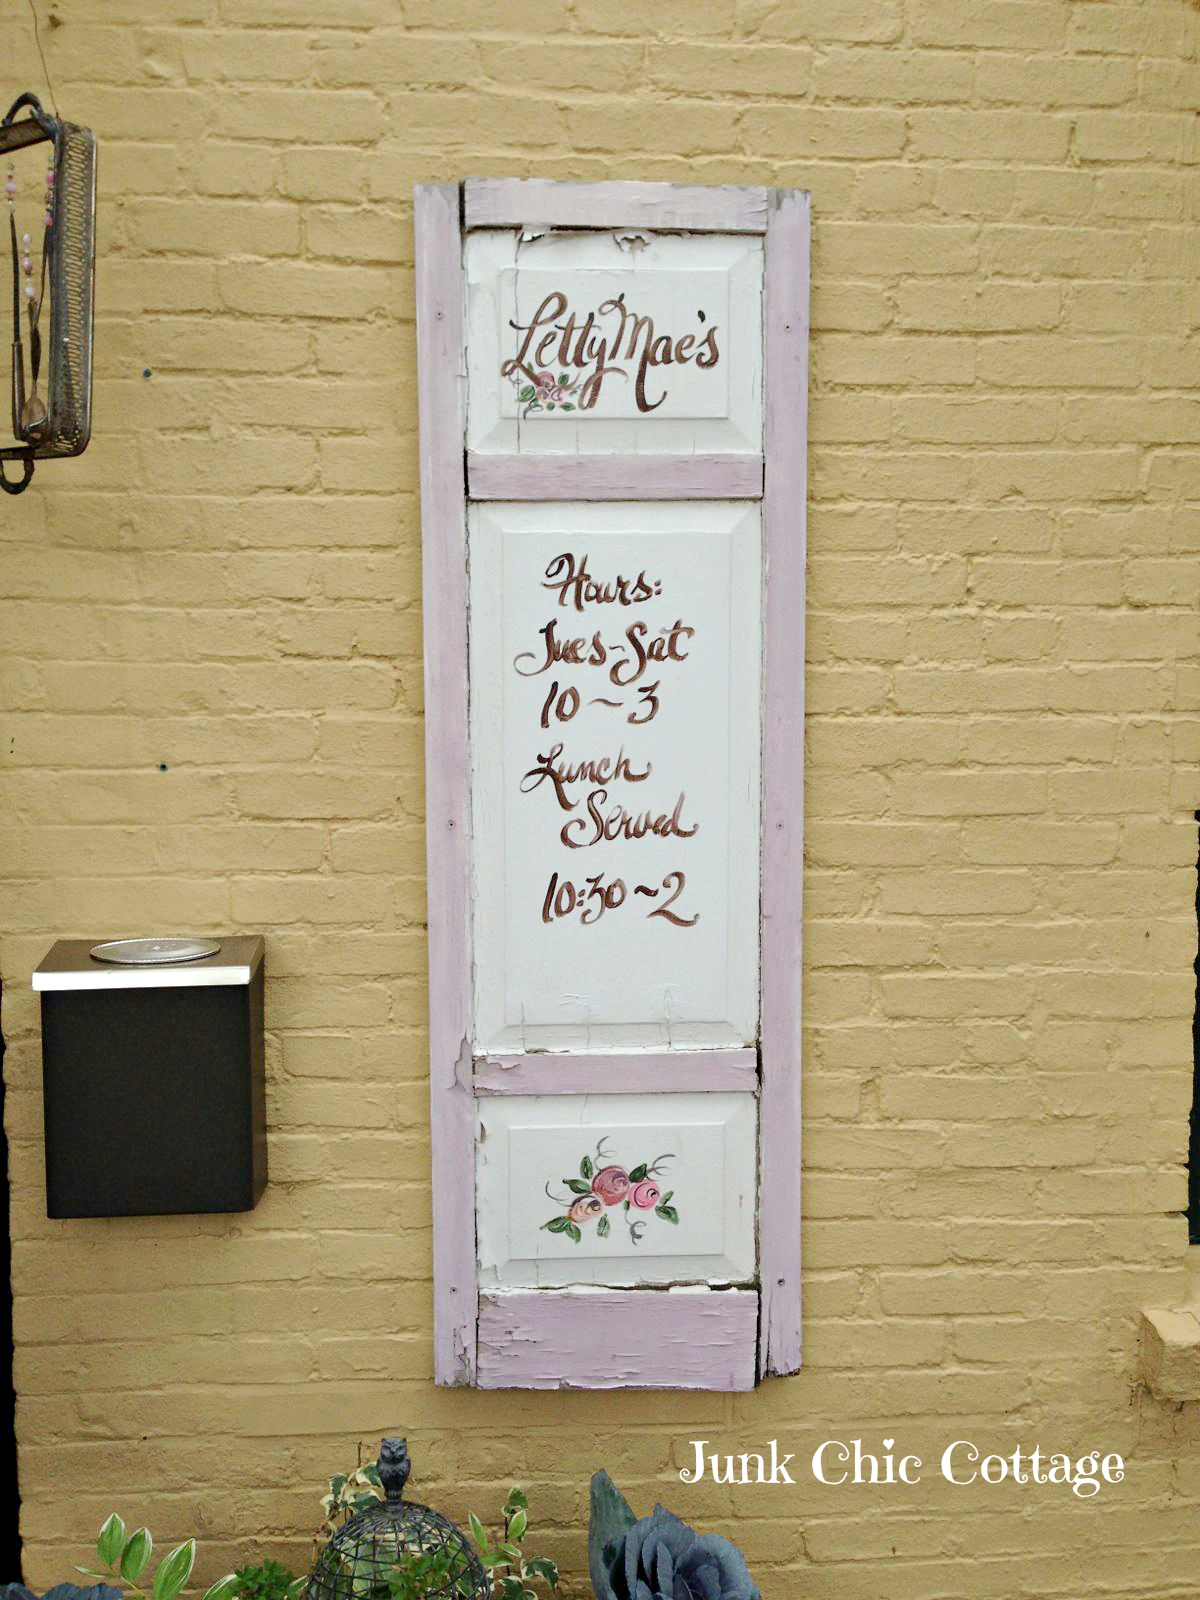 Letty Mae's
Hours:
Tues-Sat
10~3
Lunch
Served
10:30~2
Junk Chic Cottage